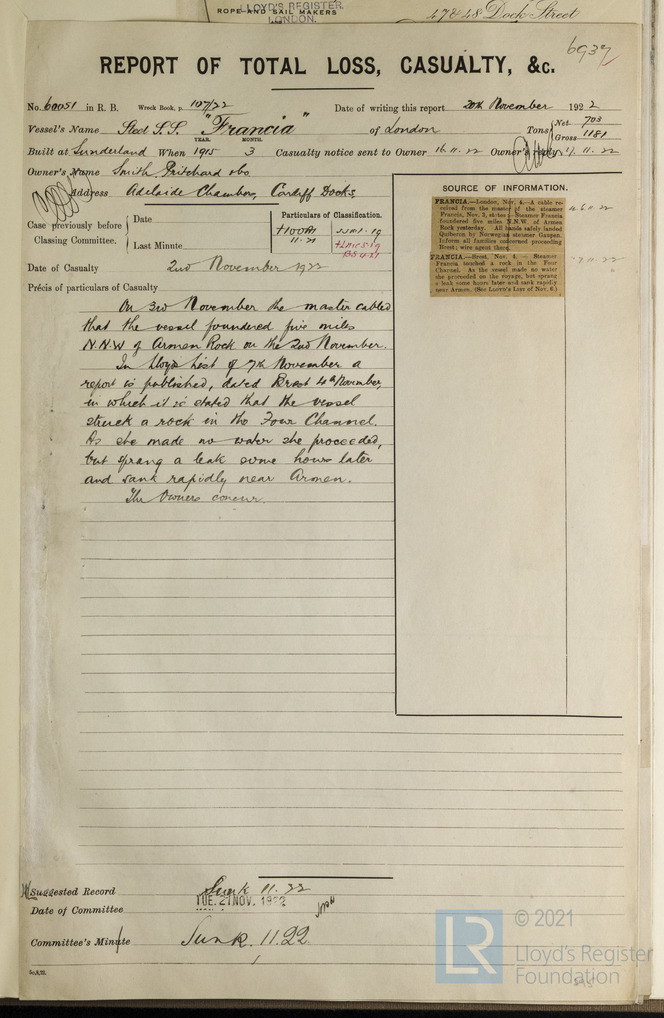 LLOYD'S REGISTER,
ROPE AND SAIL MAKERS
LONDON.
47 & 48 Dock Street
6937
REPORT OF TOTAL LOSS, CASUALTY, &c.
No. 60051 in R. B. Wreck Book, p. 107/22 Date of writing this report 20th November 1922
Vessel's Name Steel S.S. "Francia" of London Tons Net 703 Gross 1181
YEAR. MONTH.
Built at Sunderland When 1915 3 Casualty notice sent to Owner 16.11.22 Owner's reply 17.11.22
Owner's Name Smith, Pritchard
Address Adelaide Chambers, Cardiff Docks,
Case previously before Classing Committee. Date
Last Minute
Particulars of Classification.
+100A1
11.21
Date of Casualty 2nd November 1922
Précis of particulars of Casualty
On 3rd November the master cabled
that the vessel foundered five miles
N.N.W. of Armen Rock on the 2nd November.
In Lloyds List of 7th November a
report is published, dated Brest 4th November,
in which it is stated that the vessel
struck a rock in the Four Channel.
As she made no water she proceeded,
but sprang a leak some hours later
and sank rapidly near Armen.
The Owners concur.
SOURCE OF INFORMATION.
FRANCIA.—London, Nov. 4.—A cable re-
ceived from the master of the steamer
Francia, Nov. 3, states:—Steamer Francia
foundered five miles N.N.W. of Armen
Rock yesterday. All hands safely landed
Quiberon by Norwegian steamer
Inform all families concerned proceeding
Brest; wire agent there.
4.11.22
FRANCIA.—Brest, Nov. 4. — Steamer
Francia touched a rock in the Four
Channel. As the vessel made no water
she proceeded on the voyage, but sprang
a leak some hours later and sank rapidly
near Armen. (See LLOYD'S LIST of Nov. 6.)
7.11.22
Suggested Record Sunk 11.22
TUE. 21 NOV. 1922
Date of Committee
Committee's Minute Sunk. 11.22.
© 2021
LR
Lloyd's Register
Foundation